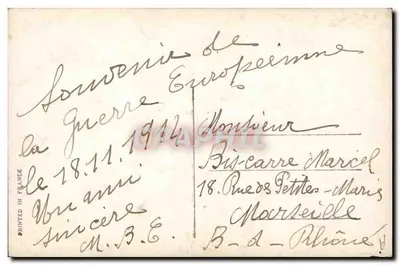 Souvenir de
la Guerre Européenne
le 18.11.1914
Un ami
sincère
M.B.E.
Monsieur
Biscarre Marcel
18. Rue des Petites-Maries
Marseille
B-d-Rhône
PRINTED IN FRANCE